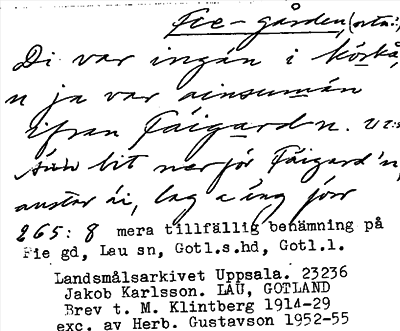 Fie-gården, (ortn.:)
Di var ingán i körkå,
n ja var ainsumán
ifran Fáigardn. U 2:5
lit nerfór Fáigard'n,
austar ái, lag a áng jörr
265:8 mera tillfällig benämning på
Fie gd, Lau sn, Gotl.s.hd, Gotl.l.
Landsmålsarkivet Uppsala. 23236
Jakob Karlsson. LAU, GOTLAND
Brev t. M. Klintberg 1914-29
exc. av Herb. Gustavson 1952-55